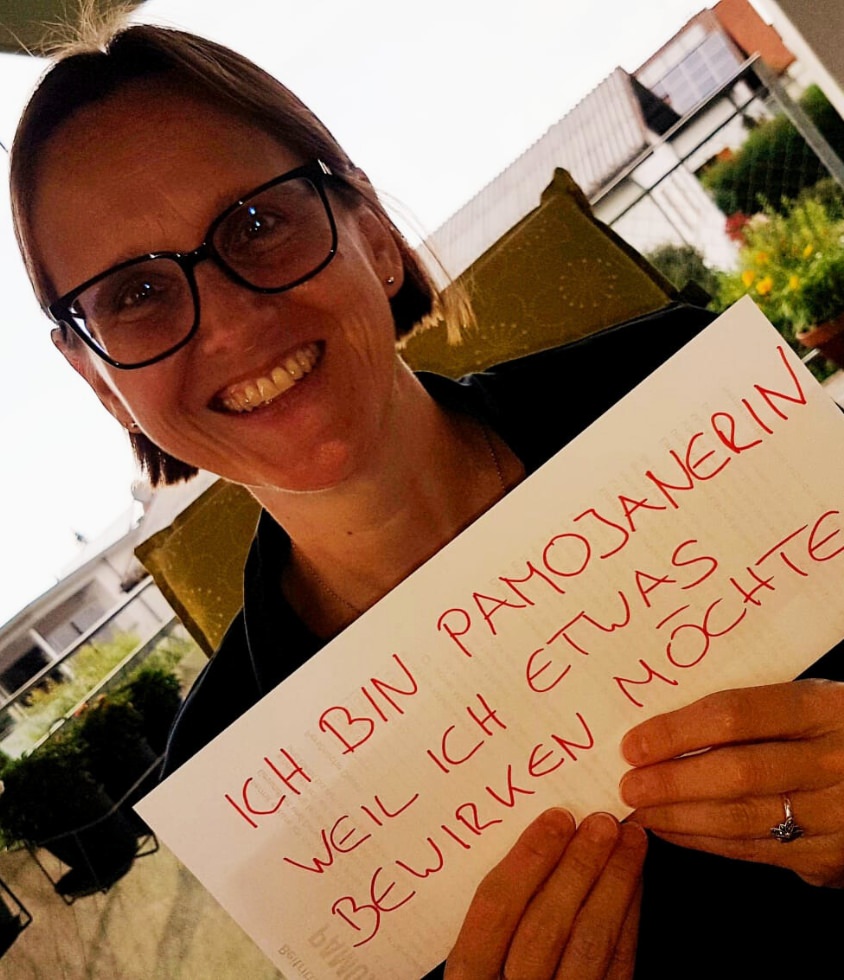 ICH BIN PAMOJANERIN
WEIL ICH ETWAS
BEWIRKEN MÖCHTE